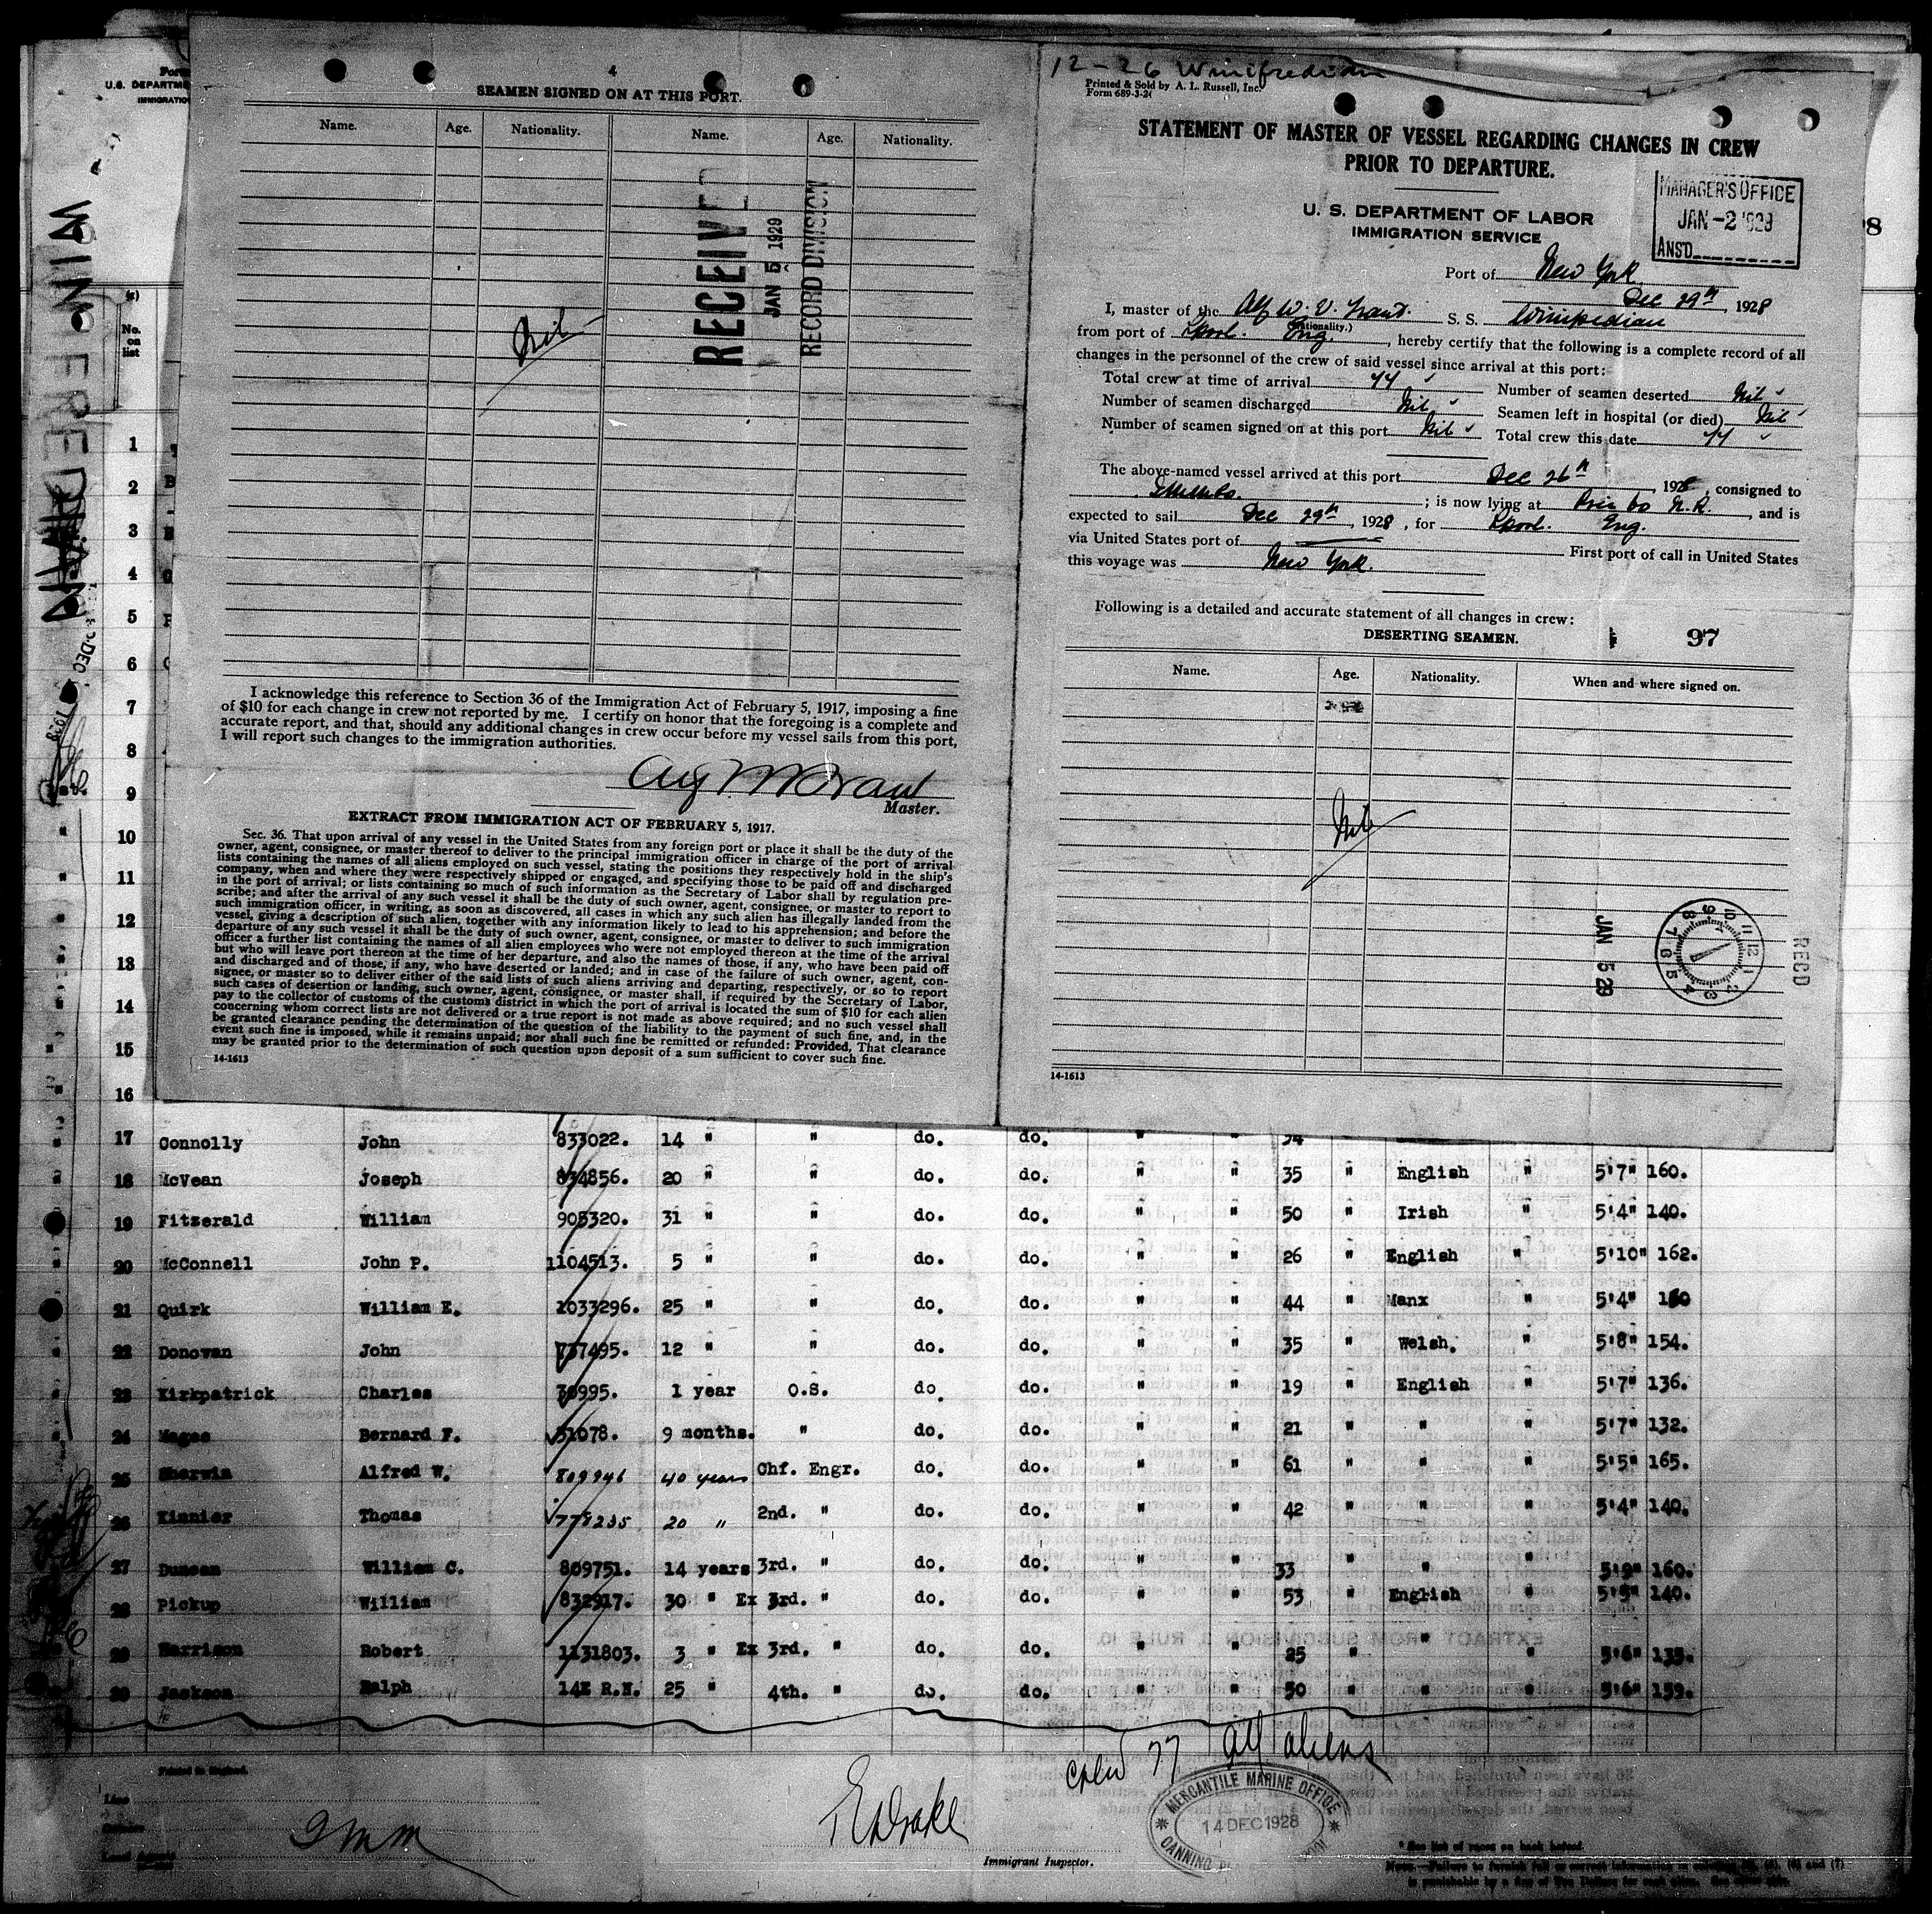 U.S. DEPARTME
IMMIGRATIO
WINIFREDIAN
No.
on
list
4
SEAMEN SIGNED ON AT THIS PORT.
Name. Age. Nationality. Name. Age. Nationality.
RECEIVED
JAN 5 1929
RECORD DIVISION
Nil
I acknowledge this reference to Section 36 of the Immigration Act of February 5, 1917, imposing a fine
of $10 for each change in crew not reported by me. I certify on honor that the foregoing is a complete and
accurate report, and that, should any additional changes in crew occur before my vessel sails from this port,
I will report such changes to the immigration authorities.
Master.
EXTRACT FROM IMMIGRATION ACT OF FEBRUARY 5, 1917.
Sec. 36. That upon arrival of any vessel in the United States from any foreign port or place it shall be the duty of the
owner, agent, consignee, or master thereof to deliver to the principal immigration officer in charge of the port of arrival
lists containing the names of all aliens employed on such vessel, stating the positions they respectively hold in the ship's
company, when and where they were respectively shipped or engaged, and specifying those to be paid off and discharged
in the port of arrival; or lists containing so much of such information as the Secretary of Labor shall by regulation pre-
scribe; and after the arrival of any such vessel it shall be the duty of such owner, agent, consignee, or master to report to
such immigration officer, in writing, as soon as discovered, all cases in which any such alien has illegally landed from the
vessel, giving a description of such alien, together with any information likely to lead to his apprehension; and before the
departure of any such vessel it shall be the duty of such owner, agent, consignee, or master to deliver to such immigration
officer a further list containing the names of all alien employees who were not employed thereon at the time of the arrival
but who will leave port thereon at the time of her departure, and also the names of those, if any, who have been paid off
and discharged and of those, if any, who have deserted or landed; and in case of the failure of such owner, agent, con-
signee, or master so to deliver either of the said lists of such aliens arriving and departing, respectively, or so to report
such cases of desertion or landing, such owner, agent, consignee, or master shall, if required by the Secretary of Labor,
pay to the collector of customs of the customs district in which the port of arrival is located the sum of $10 for each alien
concerning whom correct lists are not delivered or a true report is not made as above required; and no such vessel shall
be granted clearance pending the determination of the question of the liability to the payment of such fine, and, in the
event such fine is imposed, while it remains unpaid; nor shall such fine be remitted or refunded: Provided, That clearance
may be granted prior to the determination of such question upon deposit of a sum sufficient to cover such fine.
14-1613
12-26 Winifredian
Printed & Sold by A. L. Russell, Inc.
Form 689-3-2
STATEMENT OF MASTER OF VESSEL REGARDING CHANGES IN CREW
PRIOR TO DEPARTURE.
MANAGER'S OFFICE
JAN -2 1929
ANSD.
U. S. DEPARTMENT OF LABOR
IMMIGRATION SERVICE
Port of New York
Dec 29th, 1928
I, master of the S. S. Winifredian
(nationality.)
from port of Lpool. Eng., hereby certify that the following is a complete record of all
changes in the personnel of the crew of said vessel since arrival at this port:
Total crew at time of arrival 77 Number of seamen deserted Nil
Number of seamen discharged Nil Seamen left in hospital (or died) Nil
Number of seamen signed on at this port Nil Total crew this date 77
The above-named vessel arrived at this port Dec 26th, 1928, consigned to
; is now lying at Pier 60 N.R., and is
expected to sail Dec 29th, 1928, for Lpool. Eng.
via United States port of First port of call in United States
this voyage was New York.
Following is a detailed and accurate statement of all changes in crew:
DESERTING SEAMEN.
97
Name. Age. Nationality. When and where signed on.
Nil
JAN 5 29
RECD
14-1613
8
1
2
3
4
5
6
7
8
9
10
11
12
13
14
15
16
17 Connolly John 833022. 14 " " do. do. " " 34
18 McVean Joseph 834856. 20 " " do. do. " " 35 " English " 5'7" 160.
19 Fitzerald William 905320. 31 " " do. do. " " 50 " Irish " 5'4" 140.
20 McConnell John P. 1104513. 5 " " do. do. " " 26 " English " 5'10" 162.
21 Quirk William E. 1033296. 25 " " do. do. " " 44 " Manx " 5'4" 150
22 Donovan John 737495. 12 " " do. do. " " 35 " Welsh. " 5'8" 154.
23 Kirkpatrick Charles 30995. 1 year O.S. do. do. " " 19 " English " 5'7" 136.
24 Magee Bernard F. 51078. 9 months. " do. do. " " 21 " " " 5'7" 132.
25 Sherwin Alfred W. 809946 40 years Chf. Engr. do. do. " " 61 " " " 5'5" 165.
26 Kinnier Thomas 778235 20 " 2nd. " do. do. " " 42 " " " 5'4" 140.
27 Duncan William C. 809751. 14 years 3rd. " do. do. " " 33 " " " 5'9" 160.
28 Pickup William 832917. 30 " Ex 3rd. " do. do. " " 53 " English " 5'5" 140.
29 Harrison Robert 1131803. 3 " Ex 3rd. " do. do. " " 25 " " " 5'6" 135.
30 Jackson Ralph 14E R.N. 25 " 4th. " do. do. " " 50 " " " 5'6" 159.
77 all aliens
Printed in England.
Line
Owners
IMM
E Drake
Immigrant Inspector.
MERCANTILE MARINE OFFICE
14 DEC 1928
CANNING
* See list of races on back hereof.